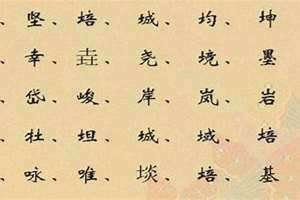 、坚、培、城、均、坤
、幸、垚、尧、境、墨
、岱、峻、岸、岚、岩
、牡、坦、城、域、培
、咏、唯、埮、培、基